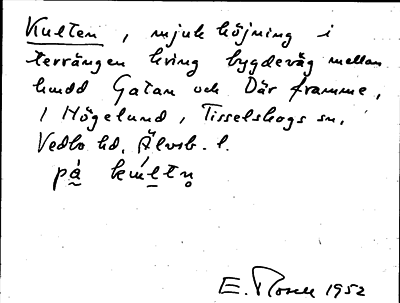 Kulten, mjuk höjning i
terrängen kring bygdeväg mellan
hudd Gatan och Där framme,
i Högelund, Tisselskogs sn,
Vedbo hd, Älvsb. l.
på
E. 1952